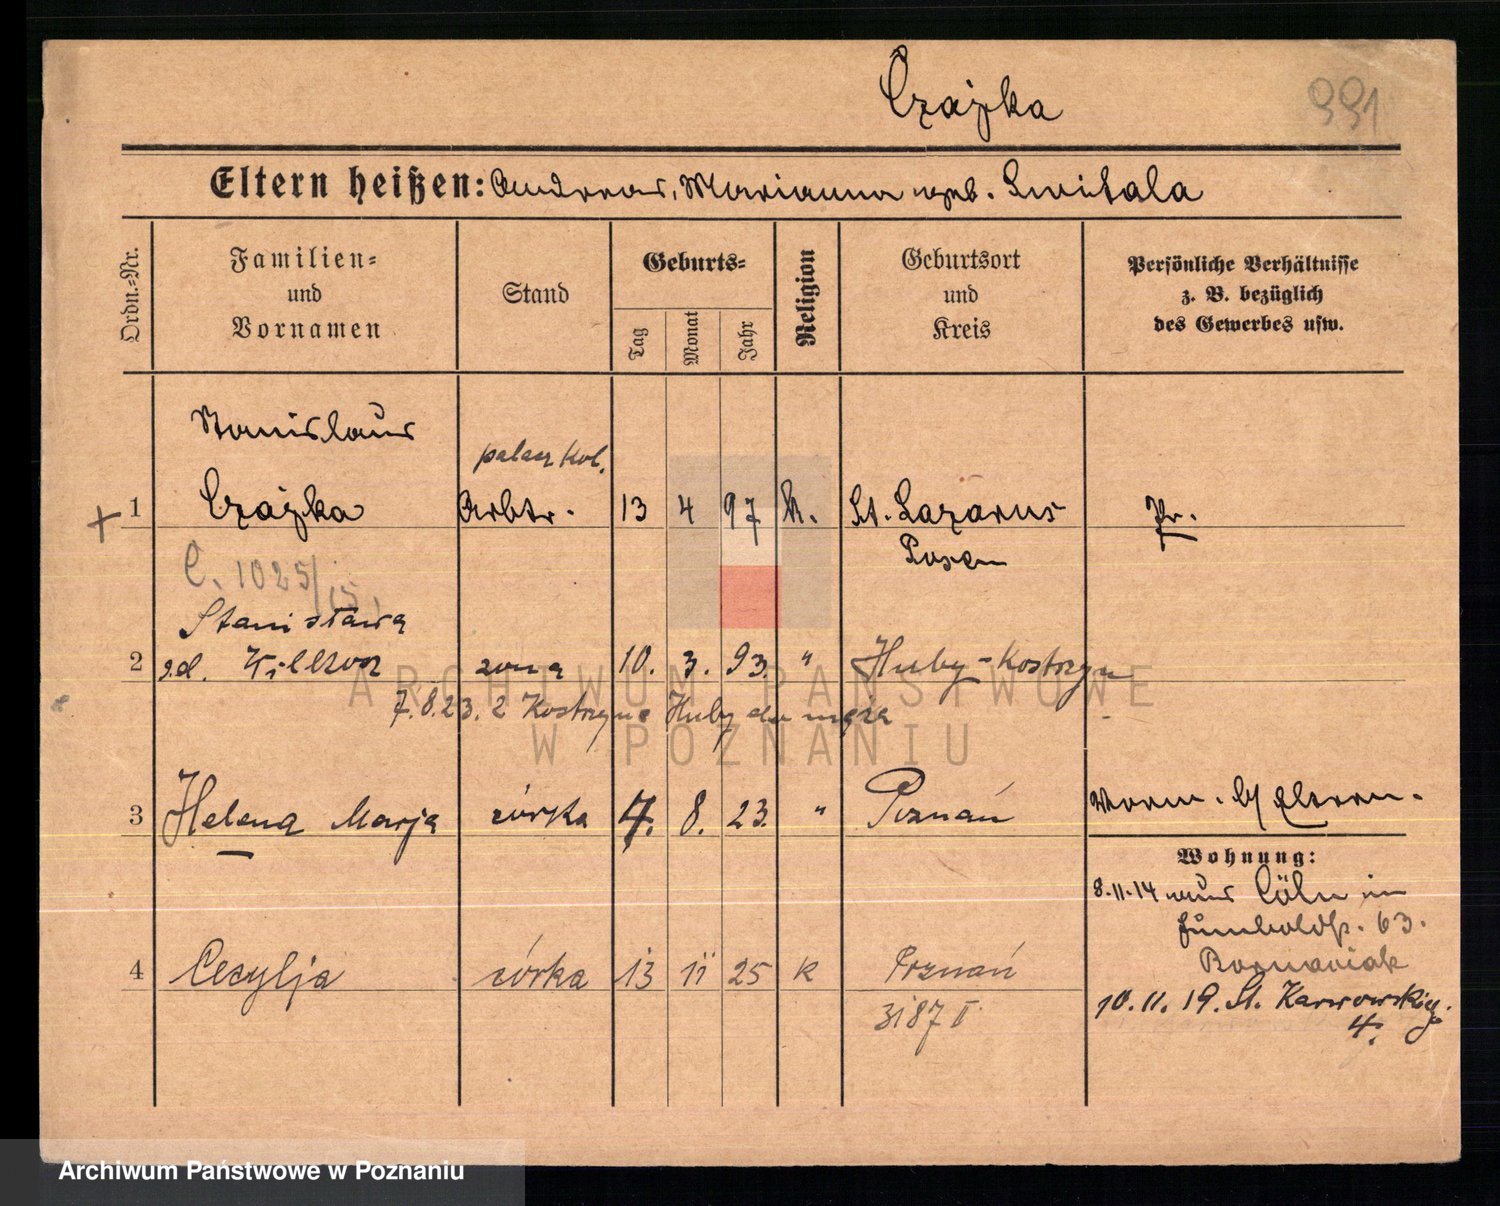 Czajka
991
Eltern heißen: Andreas, Marianna geb. Switala
Ordn.-Nr.
Familien-
und
Vornamen
Stand
Geburts-
Tag
Monat
Jahr
Religion
Geburtsort
und
Kreis
Persönliche Verhältnisse
z. B. bezüglich
des Gewerbes usw.
Stanislaus
palacz kol.
1 Czajka Arbtr. 13 4 97 k. St. Lazarus Pr.
Posen
C. 1025/15
Stanisława
2 żona 10. 3. 93. " Huby-Kostrzyn
7.8.23. z Kostrzyna Huby do męża
3 Helena Marja córka 7. 8. 23. " Poznań
Wohnung:
8.11.14 aus Cöln in
Humboldtstr. 63.
4 Cecylja córka 13 11 25 k Poznań
10.11.19. St. Karwowskieg.
4.
3187 II
ARCHIWUM PAŃSTWOWE
W POZNANIU
Archiwum Państwowe w Poznaniu